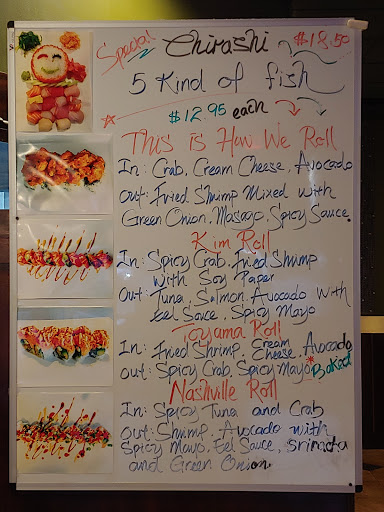 Special Chirashi $18.50
5 Kind of fish
$12.95 each
This is How We Roll
In: Crab, Cream Cheese, Avocado
Out: Fried Shrimp Mixed with
Green Onion, Masago, Spicy Sauce.
Kim Roll
In: Spicy Crab, Fried Shrimp
with Soy Paper
Out: Tuna, Salmon, Avocado with
Eel Sauce, Spicy Mayo
Toyama Roll
In: Fried Shrimp, Cream Cheese, Avocado
Out: Spicy Crab, Spicy Mayo *Baked
Nashville Roll
In: Spicy Tuna and Crab
Out: Shrimp, Avocado with
Spicy Mayo, Eel Sauce, Sriracha
and Green Onion.